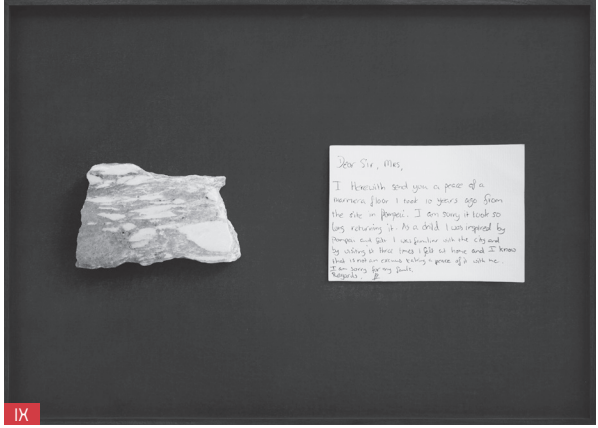 Dear Sir, Mrs,
I Herewith send you a peace of a
marmara floor I took 10 years ago from
the site in Pompeii. I am sorry it took so
long returning it. As a child I was inspired by
Pompeii and felt I was familiar with the city and
by visiting it three times I felt at home and I know
that is not an excuse taking a peace of it with me.
I am sorry for my faults.
Regards.
IX